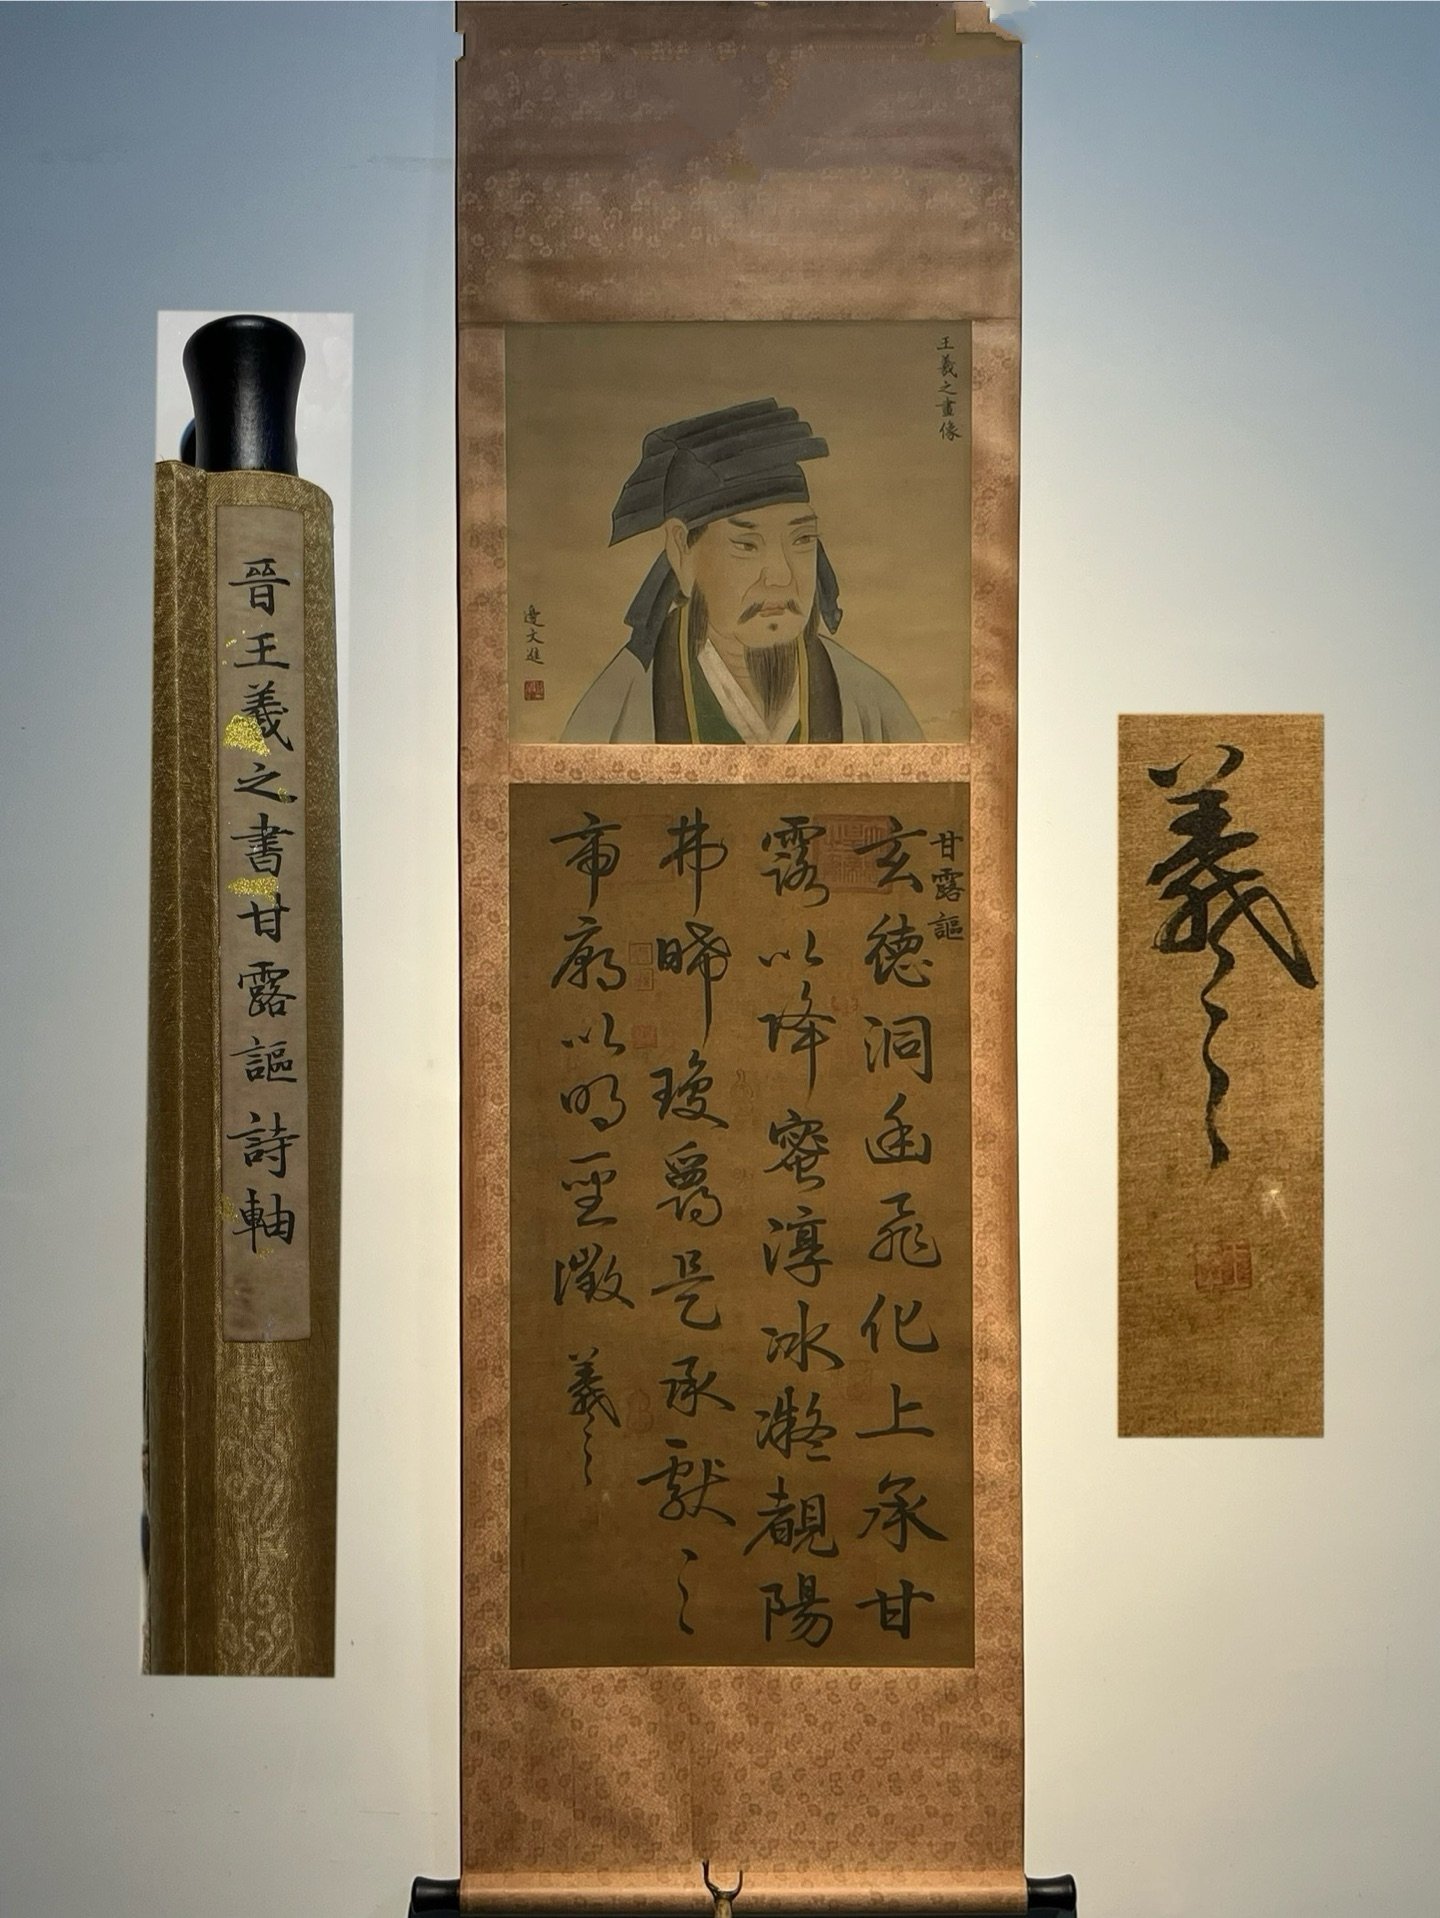 晉王羲之書甘露謳詩軸
王羲之畫像
邊文進
甘露謳
玄德洞幽飛化上承甘
露以降蜜淳冰凝覩陽
弗晞瓊爵是承獻之
帝廟以明聖徵
羲之
羲之